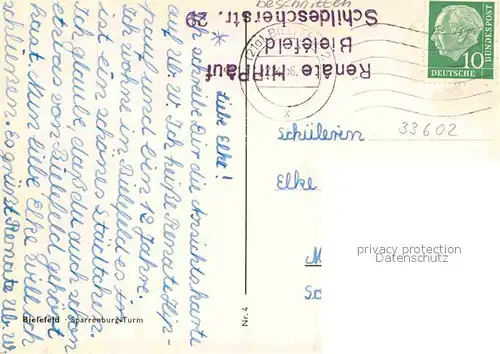 Liebe Elke!
Ich schreibe Dir die Ansichtskarte
auf U. W. Ich heiße Renate Hip-
pauf und bin 13 Jahre.
Ich wohne in Bielefeld es ist
ein schönes Städtchen.
Ich glaube, daß du auch schon
etwas von Bielefeld gehört
hast. Nun liebe Elke will ich
schliessen. Es grüsst Renate U. W.
Bielefeld · Sparrenburg-Turm
Nr. 4
beschnitten
Schildescherstr. 29
Bielefeld
Renate Hippauf
DEUTSCHE
BUNDESPOST
10
Schülerin
33602
Elke
privacy protection
ansichtskarten-center.de
M